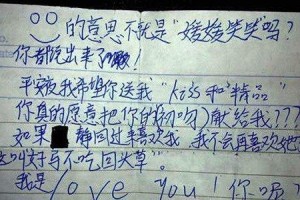 的意思不就是“媛媛笑笑”吗？
你都说出来了！
平安夜我希望你送我“kiss和精品”
你真的愿意把你的(初吻)献给我???
如果 静回过来喜欢我，我不会再喜欢她
叫好马不吃回头草”。
我是 love you！你呢？